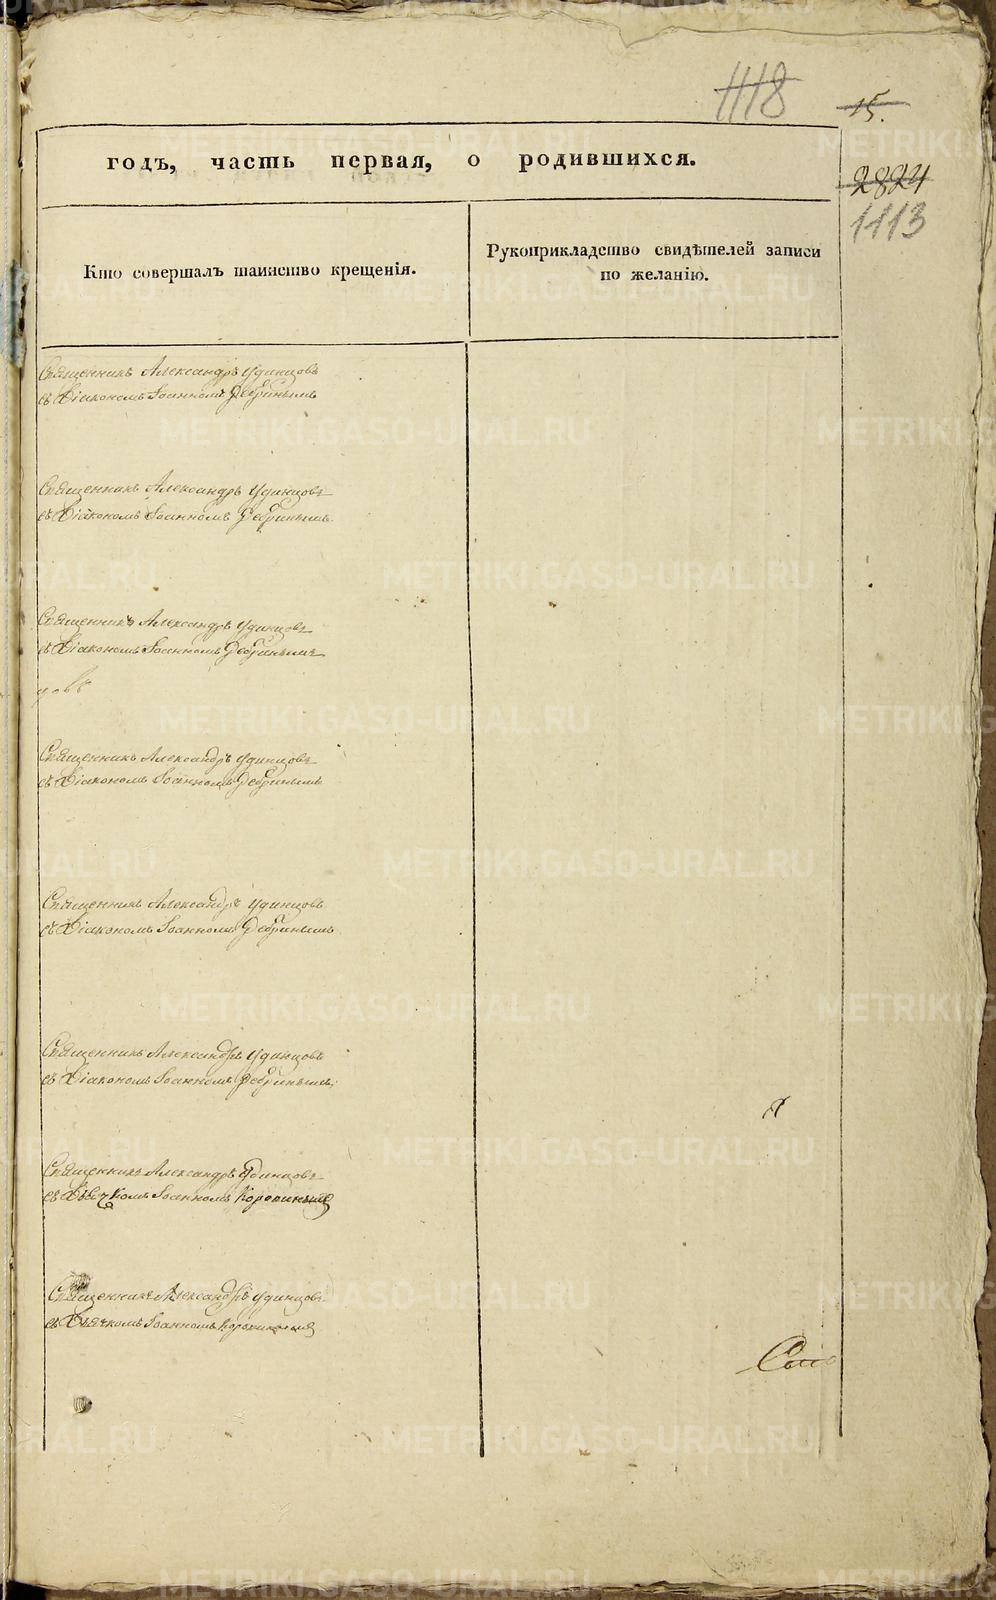 1118
15.
годъ, часть первая, о родившихся.
2824
1113
Кто совершалъ таинство крещенія.
Рукоприкладство свидѣтелей записи
по желанію.
Священникъ Александръ Удинцовъ
съ Діакономъ Іоанномъ
Священникъ Александръ Удинцовъ
съ Діакономъ Іоанномъ
Священникъ Александръ Удинцовъ
съ Діакономъ Іоанномъ
Священникъ Александръ Удинцовъ
съ Діакономъ Іоанномъ
Священникъ Александръ Удинцовъ
съ Діакономъ Іоанномъ
Священникъ Александръ Удинцовъ
съ Діакономъ Іоанномъ
Священникъ Александръ Удинцовъ
съ Дьячкомъ Іоанномъ Коровинымъ
Священникъ Александръ Удинцовъ
съ Дьячкомъ Іоанномъ Коровинымъ
METRIKI.GASO-URAL.RU